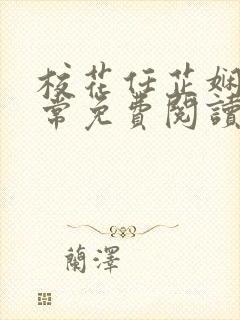 校花任芷娴
常免费閱讀
蘭澤